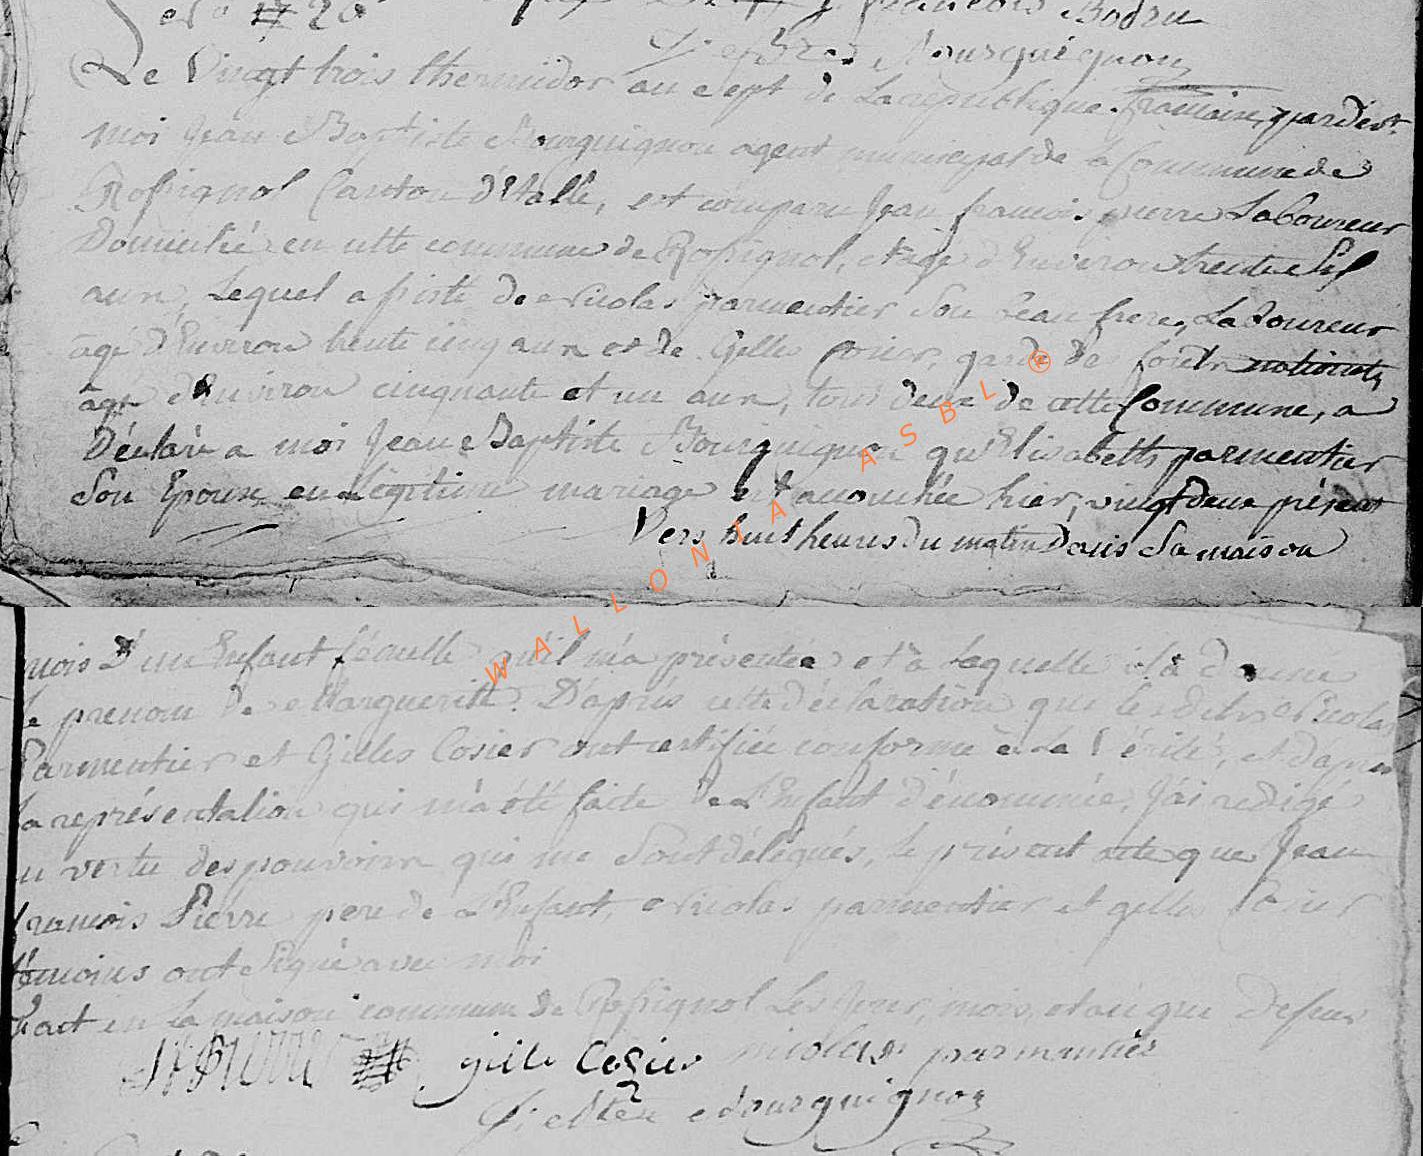 françois Bodru
J: Bte Bourguignon
Le Vingt trois thermidor an sept de La republique francaise, pardevt
moi Jean Baptiste Bourguignon agent municipal de la Commune de
Rossignol Canton d'Etalle, est comparu Jean francois pierre Laboureur
Domicilié en cette commune de Rossignol, et agé d'Environ trente Six
ans, Lequel assisté de Nicolas parmentier Son beau frere, Laboureur
âgé d'Environ trente cinq ans et de Gilles Cosier, garde de forêts nationats
âgé d'Environ cinquante et un ans, tous deux de cette Commune, a
Déclaré a moi Jean Baptiste Bourguignon qu'Elisabeth parmentier
Son Epouse en Légitime mariage est accouchée hier, vingt deux présent
Vers huit heures du matin Dans Sa maison
mois D'un Enfant fémelle qu'il m'a présentée et à Laquelle il a donné
Le prenom de Marguerite. D'après cette déclaration que lesdits Nicolas
Parmentier et Gilles Cosier ont certifiée conforme à La Vérité, et d'après
La représentation qui m'a été faite de L'Enfant dénommée, J'ai redigé
en vertu des pouvoirs qui me Sont délégués, Le présent acte que Jean
francois Pierre pere de L'Enfant, Nicolas parmentier et gilles Cosier
témoins ont Signé avec moi
Fait en La maison commune de Rossignol Les Jour, mois, et an que Dessus
JF PIERRE gille Cosier nicolas parmentier
J: Bte Bourguignon
WALLONIA ASBL ®